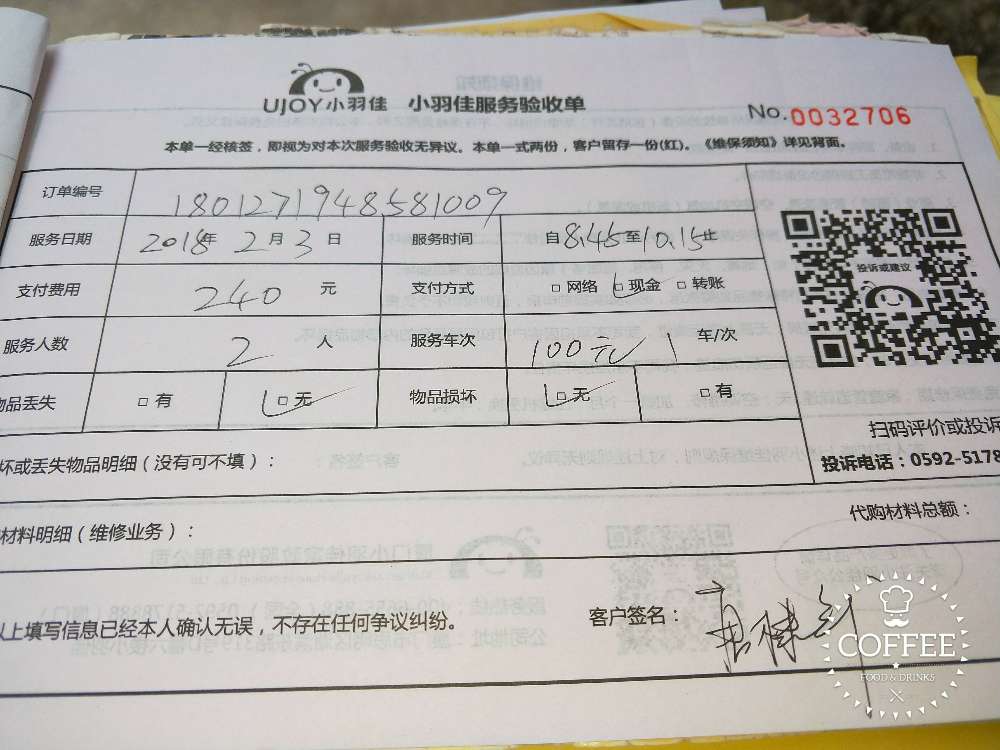 UJOY小羽佳 小羽佳服务验收单
No. 0032706
本单一经核签，即视为对本次服务验收无异议。本单一式两份，客户留存一份(红)。《维保须知》详见背面。
订单编号 1801271948581009
服务日期 2018年 2月 3日 服务时间 自8.45至10.15止
支付费用 240元 支付方式 □网络 □现金 □转账
服务人数 2人 服务车次 100元 1 车/次
物品丢失 □有 □无 物品损坏 □无 □有
投诉或建议
扫码评价或投诉
投诉电话：0592-5178
坏或丢失物品明细（没有可不填）：
材料明细（维修业务）：
代购材料总额：
以上填写信息已经本人确认无误，不存在任何争议纠纷。
客户签名：
COFFEE
FOOD & DRINKS